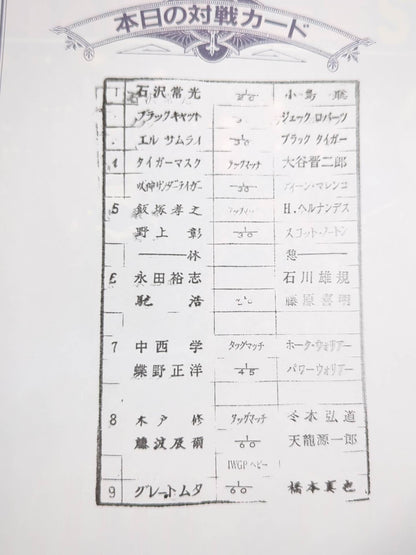 本日の対戦カード
1 石沢常光 1/20 小島聡
ブラックキャット ジェック ロバーツ
エル サムライ 1/30 ブラック タイガー
4 タイガーマスク タッグマッチ 大谷晋二郎
獣神サンダーライガー 1/30 ディーン・マレンコ
5 飯塚孝之 タッグマッチ H.ヘルナンデス
野上 彰 1/30 スコット・ノートン
休 憩
6 永田裕志 石川雄規
馳 浩 藤原喜明
7 中西 学 タッグマッチ ホーク・ウォリアー
蝶野正洋 1/45 パワーウォリアー
8 木戸 修 タッグマッチ 冬木弘道
藤波辰爾 1/60 天龍源一郎
IWGP ヘビー
9 グレートムタ 1/60 橋本真也